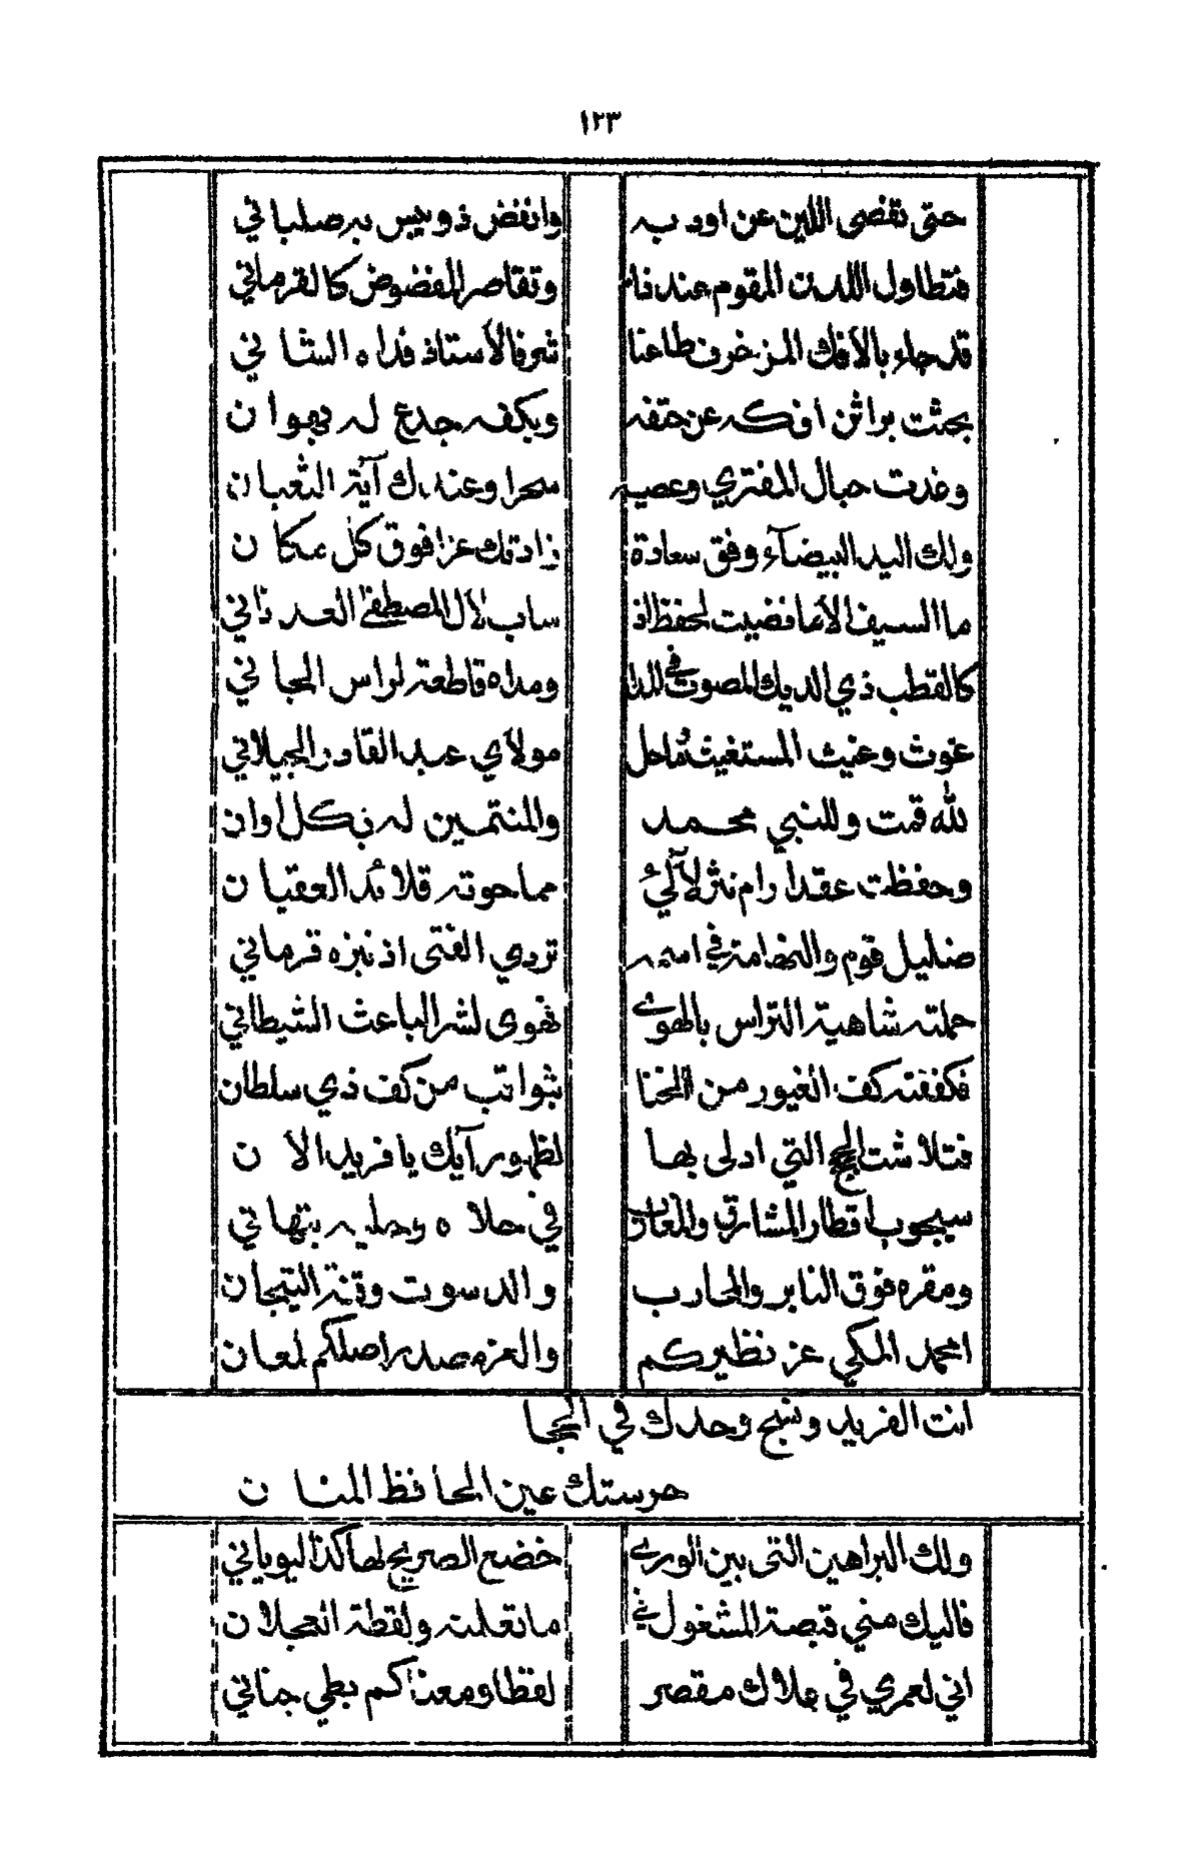 ١٢٣
حتى تقضى اللين عن اود به وانفض ذو يبس به صلباني
فتطاول اللدن المقوم عندنا وتقاصر المفضوض كالقرماني
قد جاء بالأفك المزخرف طاعنا شرفا لأستاذ فداه الشاني
بحثت براثن افكه عن حتفه وبكفه جدع له بهوان
وغدت حبال المفتري وعصيه سحرا وعندك آية الثعبان
ولك اليد البيضآء وفق سعادة زادتك عزا فوق كل مكان
ما السيف الأما قضيت لحفظ انـ ساب لآل المصطفى العدناني
كالقطب ذي الديك المصوت في المدا ومداه قاطعة لراس الجاني
غوث وغيث المستغيث ماحل مولاي عبد القادر الجيلاني
لله قمت وللنبي محمد والمنتمين له بكل أوان
وحفظت عقدا رام نثر لآلئ مما حوته قلائد العقيان
ضليل قوم والتخامة في اسمه تردي الفتى اذ نبزه قرماني
حملته شاهية التراس بالهوى تهوى لشر الباعث الشيطاني
فكففته كف الغيور من الخنا بثواتب من كف ذي سلطان
فتلاشت الحجج التي ادلى بها لظهور آيك يا فريد الأن
سيجوب اقطار المشارق والمغارب في حلاه وحليه بتهاني
ومقره فوق النابر والمحارب والدسوت وقنة التيجان
امحمد المكي عز نظيركم والعز مصدر اصلكم لمعان
انت الفريد ونسج وحدك في الحجا
حرستك عين الحافظ المنان
ولك البراهين التى بين الورى خضع الصريح لها كذا اليوناني
فاليك مني قبصة المشغول في ما تعلنه ولقطة العجلان
اني لعمري في علاك مقصر لفظا ومعناكم بطي جناني